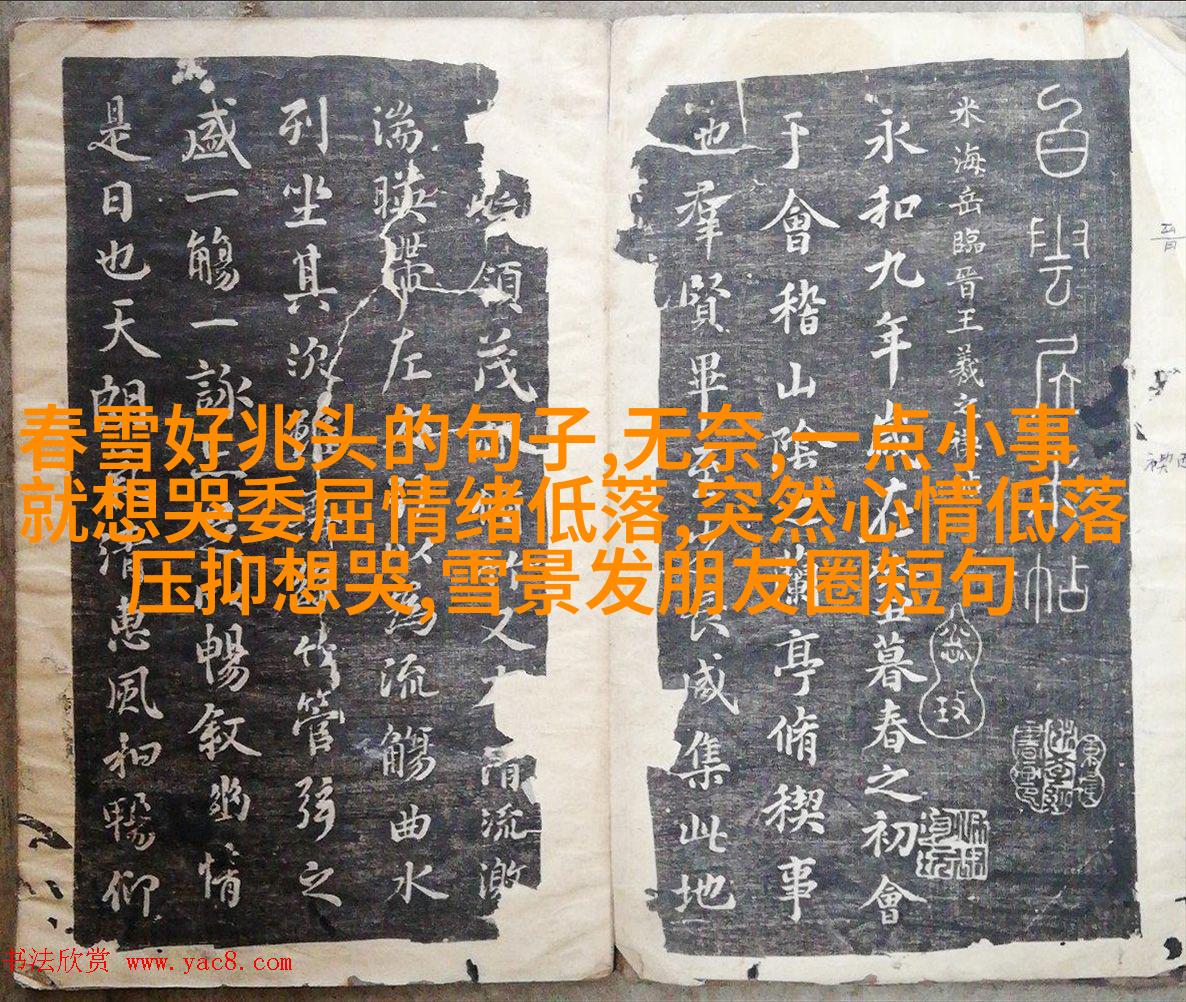 春雪好兆头的句子,无奈,一点小事
就想哭委屈情绪低落,突然心情低落
压抑想哭,雪景发朋友圈短句
米海岳臨晉王羲之禊帖
永和九年歲在癸丑暮春之初會
于會稽山陰之蘭亭脩禊事
也羣賢畢至少長咸集此地
領茂林脩竹又有清流激
湍暎帶左右引以為流觴曲水
列坐其次雖無絲竹管弦之
盛一觴一詠亦足以暢敘幽情
是日也天朗氣清惠風和暢仰
书法欣赏 www.yac8.com